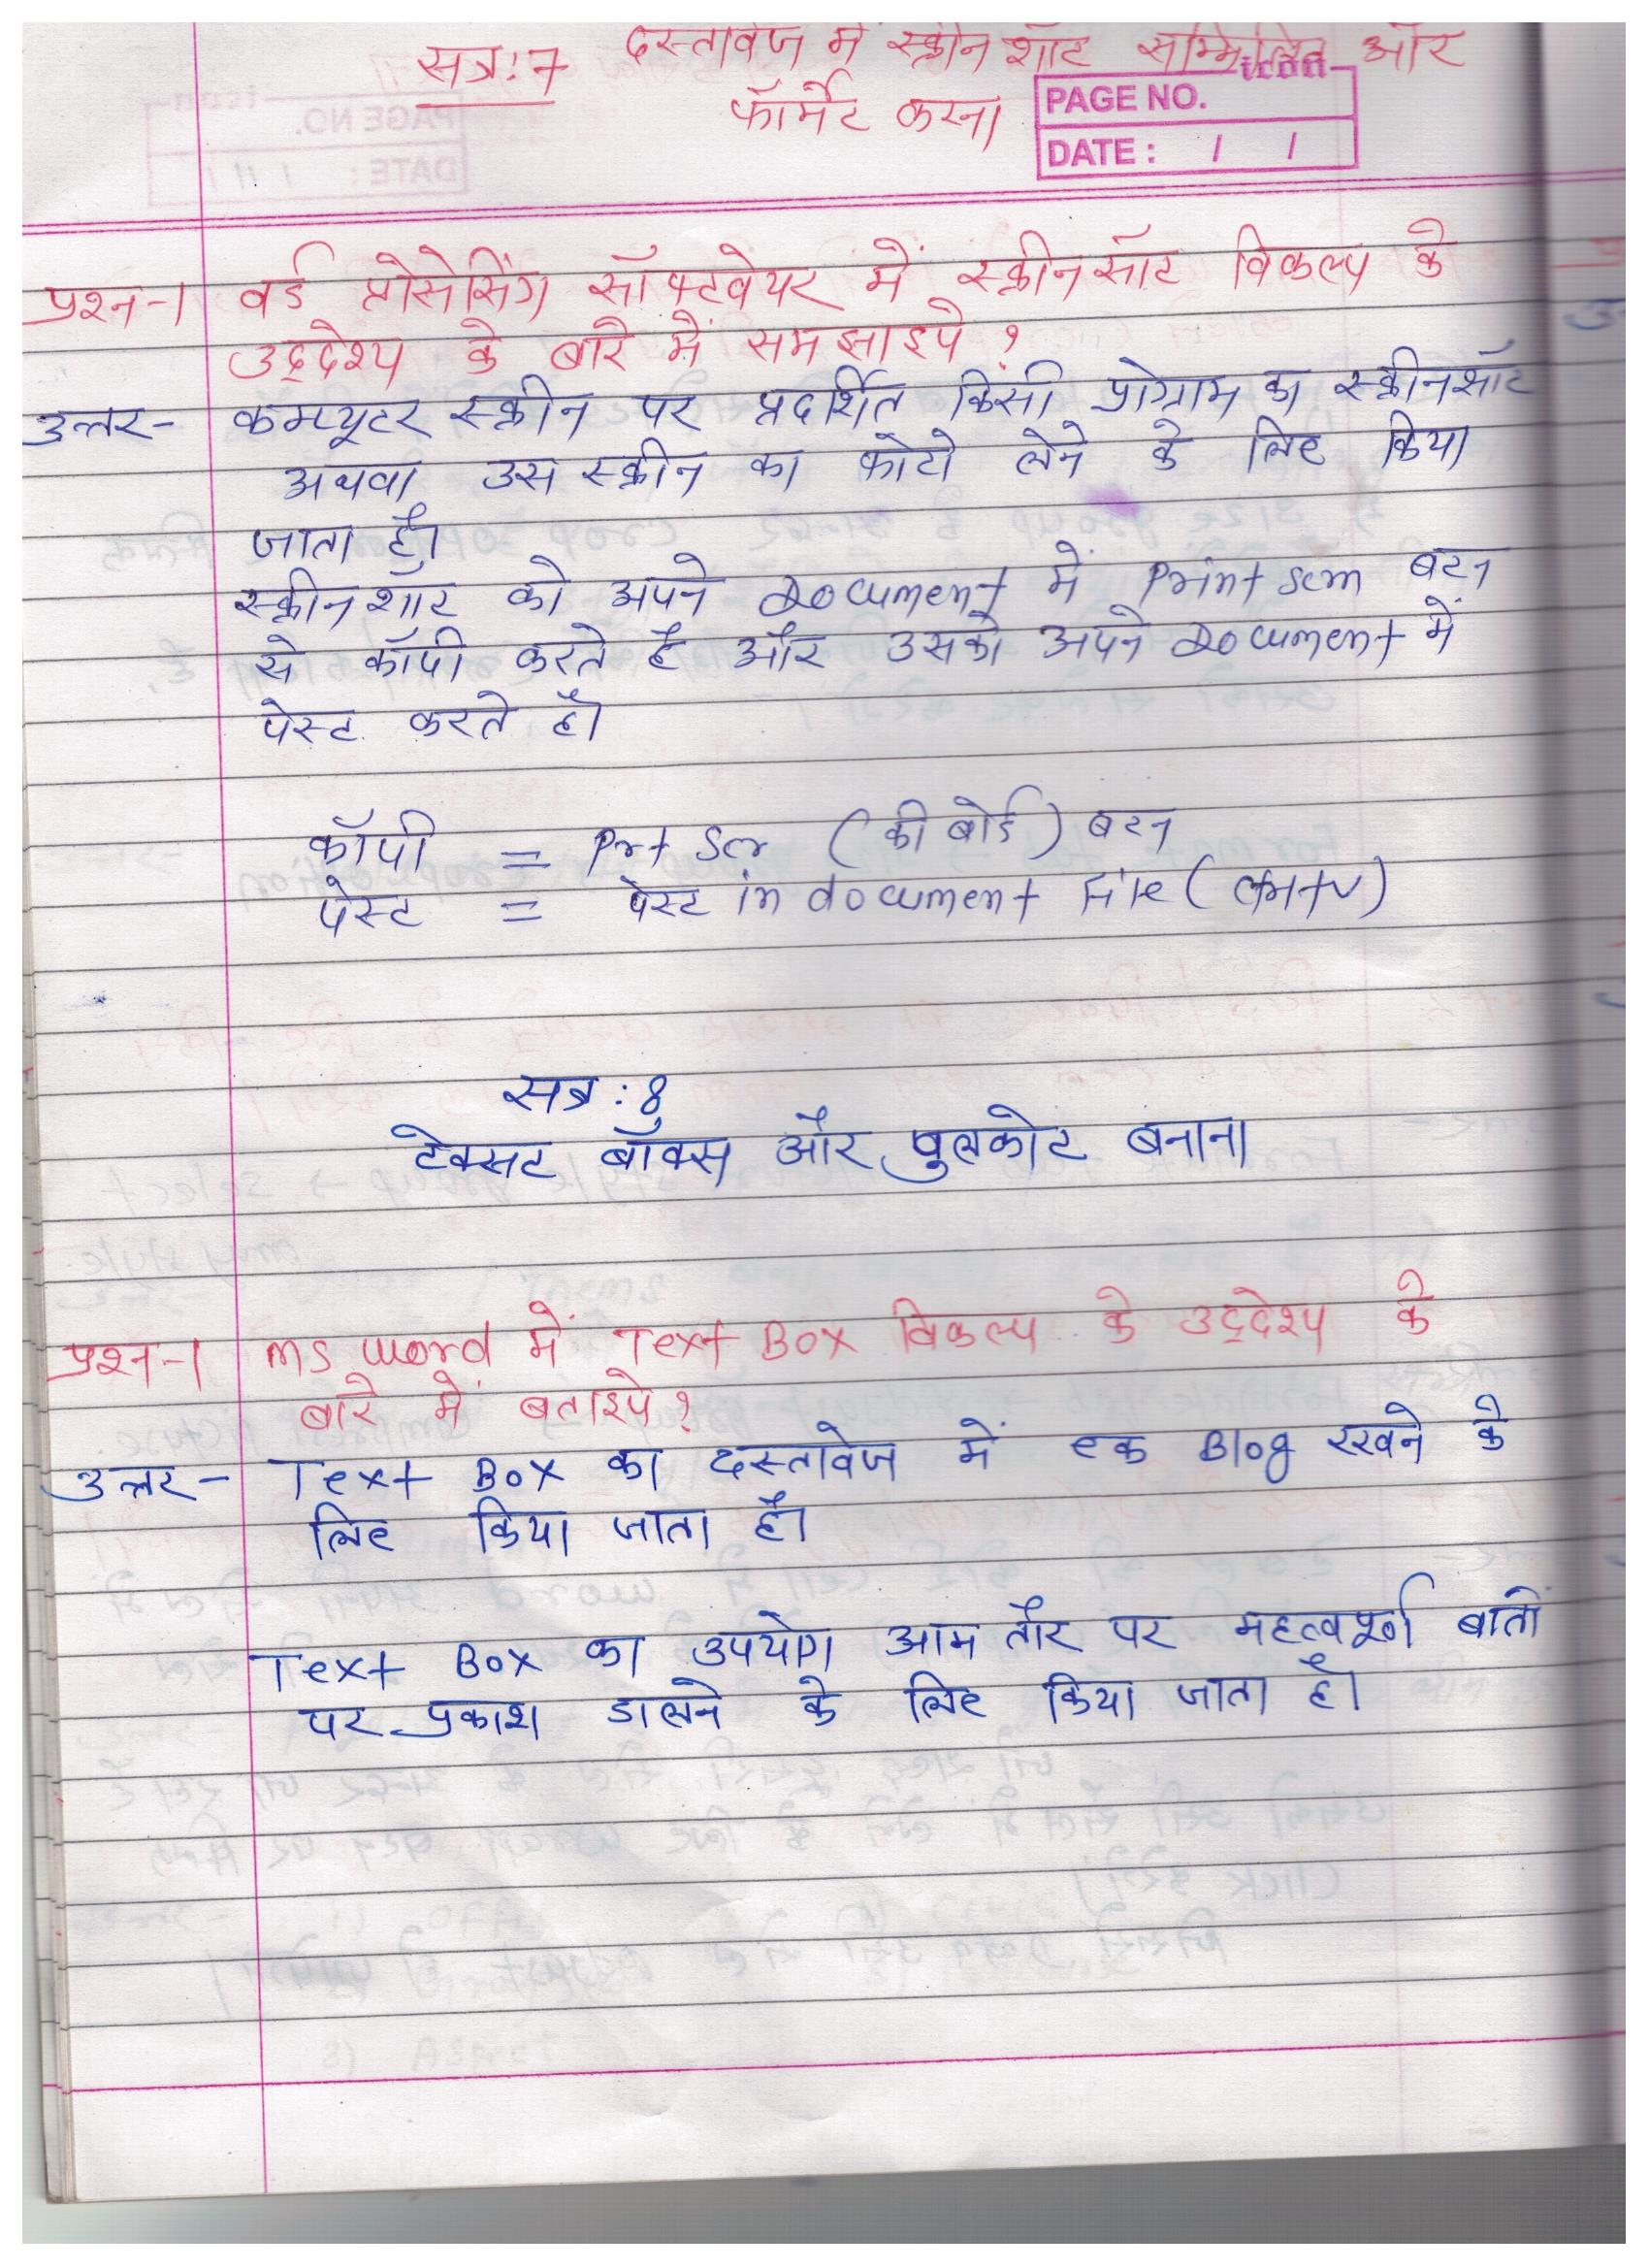 सत्र: 7 दस्तावेज में स्क्रीन शॉट सम्मिलित और
फॉर्मेट करना
icon
PAGE NO.
DATE : / /
प्रश्न-1 वर्ड प्रोसेसिंग सॉफ्टवेयर में स्क्रीनसॉट विकल्प के
उद्देश्य के बारे में समझाइये ?
उत्तर- कम्प्यूटर स्क्रीन पर प्रदर्शित किसी प्रोग्राम का स्क्रीनशॉट
अथवा उस स्क्रीन का फोटो लेने के लिए किया
जाता है।
स्क्रीनशॉट को अपने Document में Print scrn बटन
से कॉपी करते है और उसको अपने Document में
पेस्ट करते है।
कॉपी = Prt Scr (की बोर्ड) बटन
पेस्ट = पेस्ट in document File (Ctrl+v)
सत्र : 8
टेक्सट बॉक्स और पुलकोट बनाना
प्रश्न-1 ms word में Text Box विकल्प के उद्देश्य के
बारे में बताइये ?
उत्तर- Text Box का दस्तावेज में एक Blog रखने के
लिए किया जाता है।
Text Box का उपयोग आम तौर पर महत्वपूर्ण बातों
पर प्रकाश डालने के लिए किया जाता है।